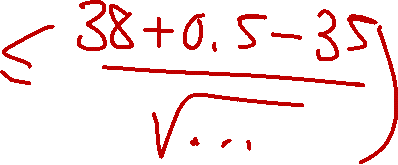 ≤ \frac{38+0.5-35}{\sqrt{...}} )